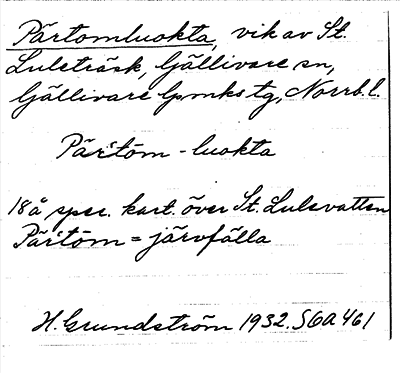 Pärtomluokta, vik av St.
Luleträsk, Gällivare sn,
Gällivare lpmks tg, Norrb. l.
Pärtōm - luokta
18 å spec. kart. över St. Lulevatten
Pärtōm = järvfälla
H. Grundström 1932. SGA 461